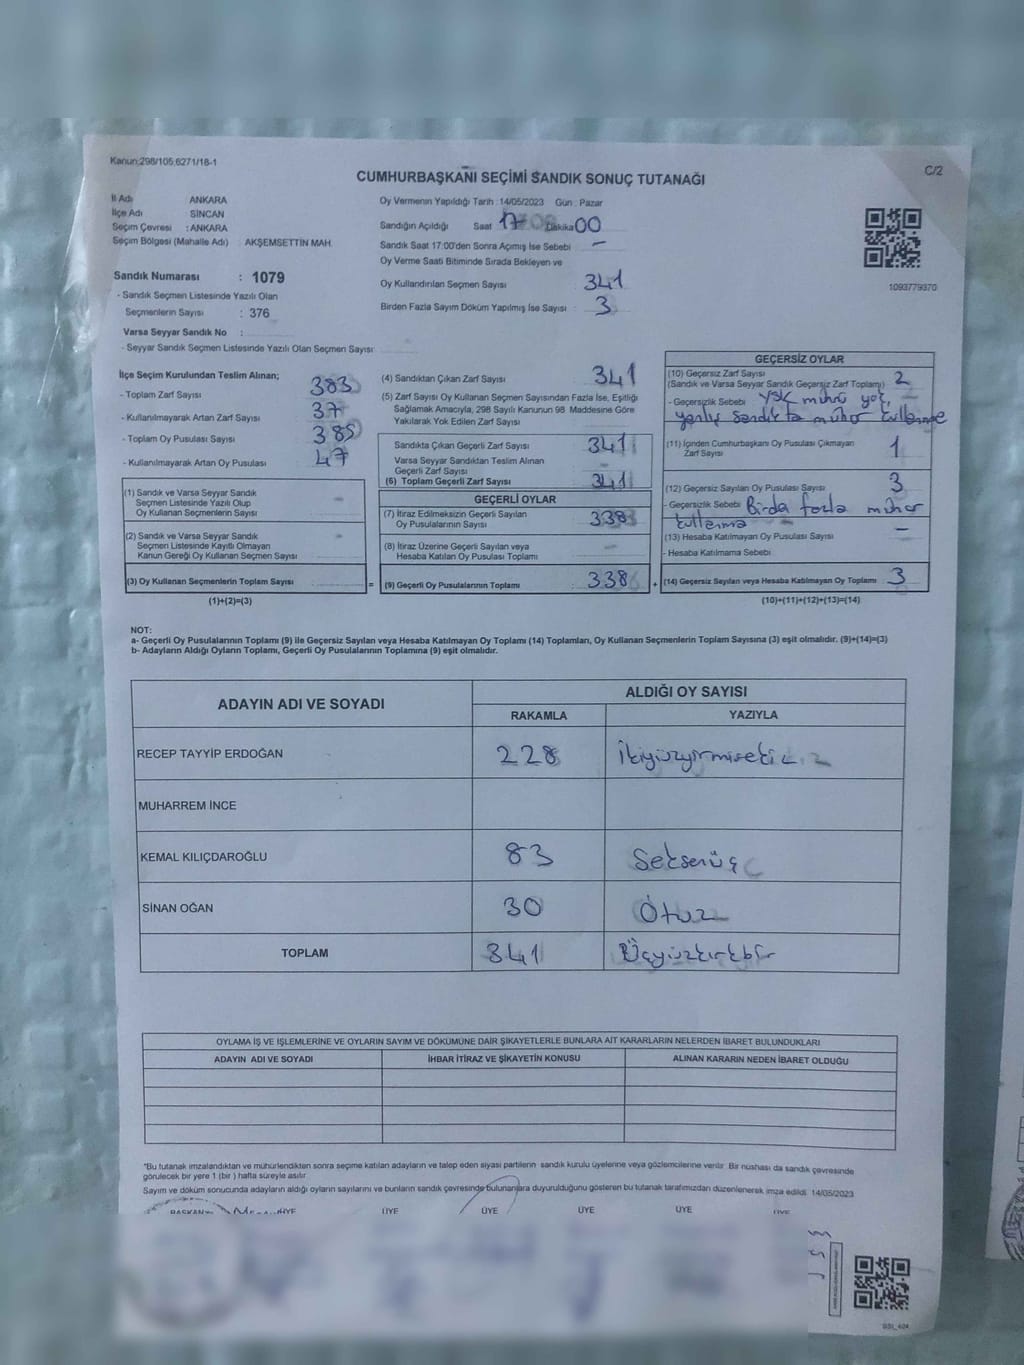 Kanun:298/105,6271/18-1
C/2
CUMHURBAŞKANI SEÇİMİ SANDIK SONUÇ TUTANAĞI
İl Adı ANKARA
İlçe Adı SİNCAN
Seçim Çevresi : ANKARA
Seçim Bölgesi (Mahalle Adı) : AKŞEMSETTİN MAH.
Oy Vermenin Yapıldığı Tarih : 14/05/2023 Gün : Pazar
Sandığın Açıldığı Saat 17 Dakika 00
Sandık Saat 17:00'den Sonra Açımış İse Sebebi -
Oy Verme Saati Bitiminde Sırada Bekleyen ve
Oy Kullandırılan Seçmen Sayısı 341
Birden Fazla Sayım Döküm Yapılmış İse Sayısı : 3
1093779370
Sandık Numarası : 1079
- Sandık Seçmen Listesinde Yazılı Olan
Seçmenlerin Sayısı : 376
Varsa Seyyar Sandık No :
- Seyyar Sandık Seçmen Listesinde Yazılı Olan Seçmen Sayısı:
İlçe Seçim Kurulundan Teslim Alınan;
- Toplam Zarf Sayısı 383
- Kullanılmayarak Artan Zarf Sayısı : 37
- Toplam Oy Pusulası Sayısı : 385
- Kullanılmayarak Artan Oy Pusulası : 47
(1) Sandık ve Varsa Seyyar Sandık
Seçmen Listesinde Yazılı Olup
Oy Kullanan Seçmenlerin Sayısı -
(2) Sandık ve Varsa Seyyar Sandık
Seçmen Listesinde Kayıtlı Olmayan
Kanun Gereği Oy Kullanan Seçmen Sayısı -
(3) Oy Kullanan Seçmenlerin Toplam Sayısı =
(1)+(2)=(3)
(4) Sandıktan Çıkan Zarf Sayısı : 341
(5) Zarf Sayısı Oy Kullanan Seçmen Sayısından Fazla İse, Eşitliği
Sağlamak Amacıyla, 298 Sayılı Kanunun 98 Maddesine Göre
Yakılarak Yok Edilen Zarf Sayısı
Sandıkta Çıkan Geçerli Zarf Sayısı : 341
Varsa Seyyar Sandıktan Teslim Alınan
Geçerli Zarf Sayısı
(6) Toplam Geçerli Zarf Sayısı : 341
GEÇERLİ OYLAR
(7) İtiraz Edilmeksizin Geçerli Sayılan
Oy Pusulalarının Sayısı : 338
(8) İtiraz Üzerine Geçerli Sayılan veya
Hesaba Katılan Oy Pusulası Toplamı -
(9) Geçerli Oy Pusulalarının Toplamı : 338 +
GEÇERSİZ OYLAR
(10) Geçersiz Zarf Sayısı
(Sandık ve Varsa Seyyar Sandık Geçersiz Zarf Toplamı) 2
- Geçersizlik Sebebi : YSK mührü yok,
yanlış sandıkta mühür kullanma
(11) İçinden Cumhurbaşkanı Oy Pusulası Çıkmayan
Zarf Sayısı 1
(12) Geçersiz Sayılan Oy Pusulası Sayısı 3
- Geçersizlik Sebebi Birda fazla mühür
kullanma
(13) Hesaba Katılmayan Oy Pusulası Sayısı -
- Hesaba Katılmama Sebebi
(14) Geçersiz Sayılan veya Hesaba Katılmayan Oy Toplamı 3
(10)+(11)+(12)+(13)=(14)
NOT:
a- Geçerli Oy Pusulalarının Toplamı (9) ile Geçersiz Sayılan veya Hesaba Katılmayan Oy Toplamı (14) Toplamları, Oy Kullanan Seçmenlerin Toplam Sayısına (3) eşit olmalıdır. (9)+(14)=(3)
b- Adayların Aldığı Oyların Toplamı, Geçerli Oy Pusulalarının Toplamına (9) eşit olmalıdır.
ADAYIN ADI VE SOYADI
ALDIĞI OY SAYISI
RAKAMLA YAZIYLA
RECEP TAYYİP ERDOĞAN 228 İkiyüzyirmisekiz
MUHARREM İNCE
KEMAL KILIÇDAROĞLU 83 Seksenüç
SİNAN OĞAN 30 Otuz
TOPLAM 341 Üçyüzkırkbir
OYLAMA İŞ VE İŞLEMLERİNE VE OYLARIN SAYIM VE DÖKÜMÜNE DAİR ŞİKAYETLERLE BUNLARA AİT KARARLARIN NELERDEN İBARET BULUNDUKLARI
ADAYIN ADI VE SOYADI İHBAR İTİRAZ VE ŞİKAYETİN KONUSU ALINAN KARARIN NEDEN İBARET OLDUĞU
*Bu tutanak imzalandıktan ve mühürlendikten sonra seçime katılan adayların ve talep eden siyasi partilerin sandık kurulu üyelerine veya gözlemcilerine verilir. Bir nüshası da sandık çevresinde
görülecek bir yere 1 (bir ) hafta süreyle asılır.
Sayım ve döküm sonucunda adayların aldığı oyların sayılarını ve bunların sandık çevresinde bulunanlara duyurulduğunu gösteren bu tutanak tarafımızdan düzenlenerek imza edildi. 14/05/2023
BAŞKAN ÜYE ÜYE ÜYE ÜYE ÜYE ÜYE